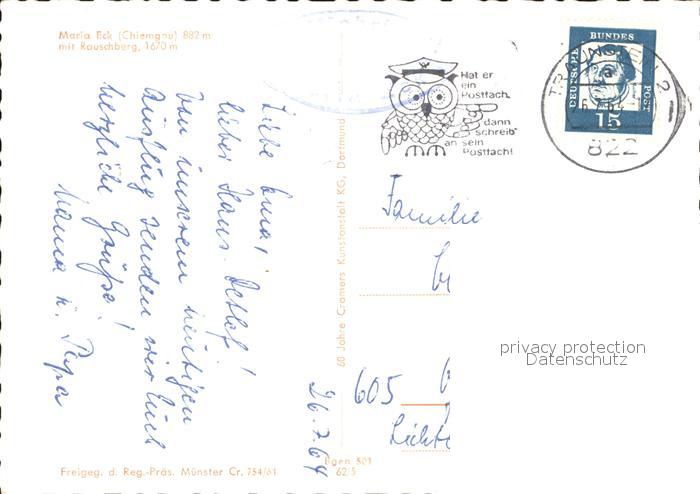 Maria Eck (Chiemgau) 882 m
mit Rauschberg, 1670 m
Liebe Erna,
lieber Hans-Detlef!
Von unserem heutigen
Ausflug senden wir Euch
herzliche Grüße!
Mama u. Papa
26.7.64
Freigeg. d. Reg.-Präs. Münster Cr. 754/61
60 Jahre Cramers Kunstanstalt KG, Dortmund
501
62/5
Hat er
ein
Postfach,
dann
schreib'
an sein
Postfach!
DEUTSCHE BUNDESPOST
15
TRAUNSTEIN 2
822
Familie
605
privacy protection
Datenschutz